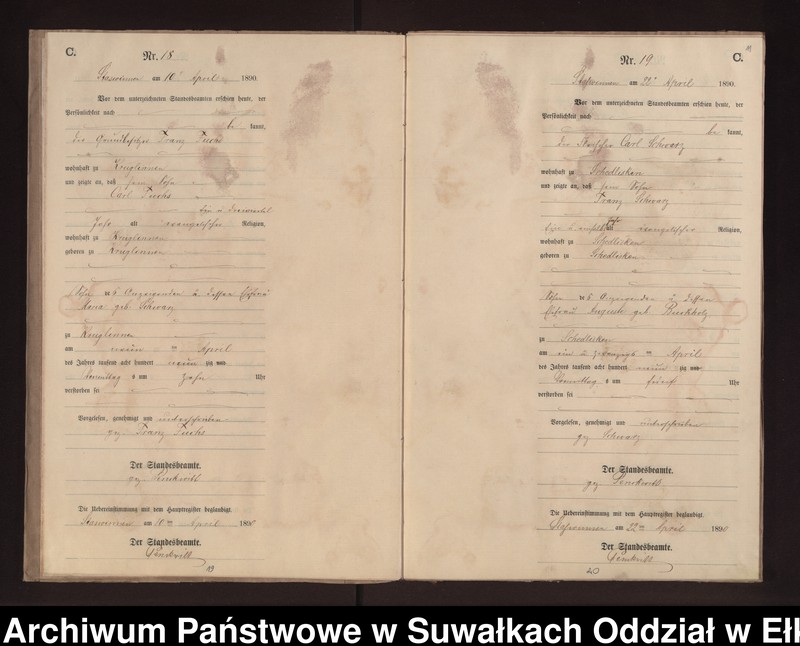 C.
Nr. 18
am 10 April 1890.
Vor dem unterzeichneten Standesbeamten erschien heute, der
Persönlichkeit nach
be kannt,
der Grundbesitzer Franz Fuchs
wohnhaft zu Kruglennen
und zeigte an, daß sein Sohn
Carl Fuchs
Jahr alt evangelischer Religion,
wohnhaft zu Kruglennen
geboren zu Kruglennen
Sohn des Anzeigenden u. dessen Ehefrau
geb. Schwarz
zu Kruglennen
am neun ten April
des Jahres tausend acht hundert neun zig
Vormittag s um zehn Uhr
verstorben sei
Vorgelesen, genehmigt und unterschrieben
gez Franz Fuchs
Der Standesbeamte.
gez
Die Uebereinstimmung mit dem Hauptregister beglaubigt.
am 10 ten April 1890
Der Standesbeamte.
19
19
C.
Nr. 19
am 22 April 1890.
Vor dem unterzeichneten Standesbeamten erschien heute, der
Persönlichkeit nach
be kannt,
der Carl Schwarz
wohnhaft zu Schedlisken
und zeigte an, daß sein Sohn
Franz Schwarz
alt evangelischer Religion,
wohnhaft zu Schedlisken
geboren zu Schedlisken
Sohn des Anzeigenden u. dessen
Ehefrau Auguste geb
zu Schedlisken
am ein u. zwanzigsten April
des Jahres tausend acht hundert neun zig
Vormittag s um fünf Uhr
verstorben sei
Vorgelesen, genehmigt und unterschrieben
gez Schwarz
Der Standesbeamte.
gez
Die Uebereinstimmung mit dem Hauptregister beglaubigt.
am 22 ten April 1890
Der Standesbeamte.
20
Archiwum Państwowe w Suwałkach Oddział w Ełk